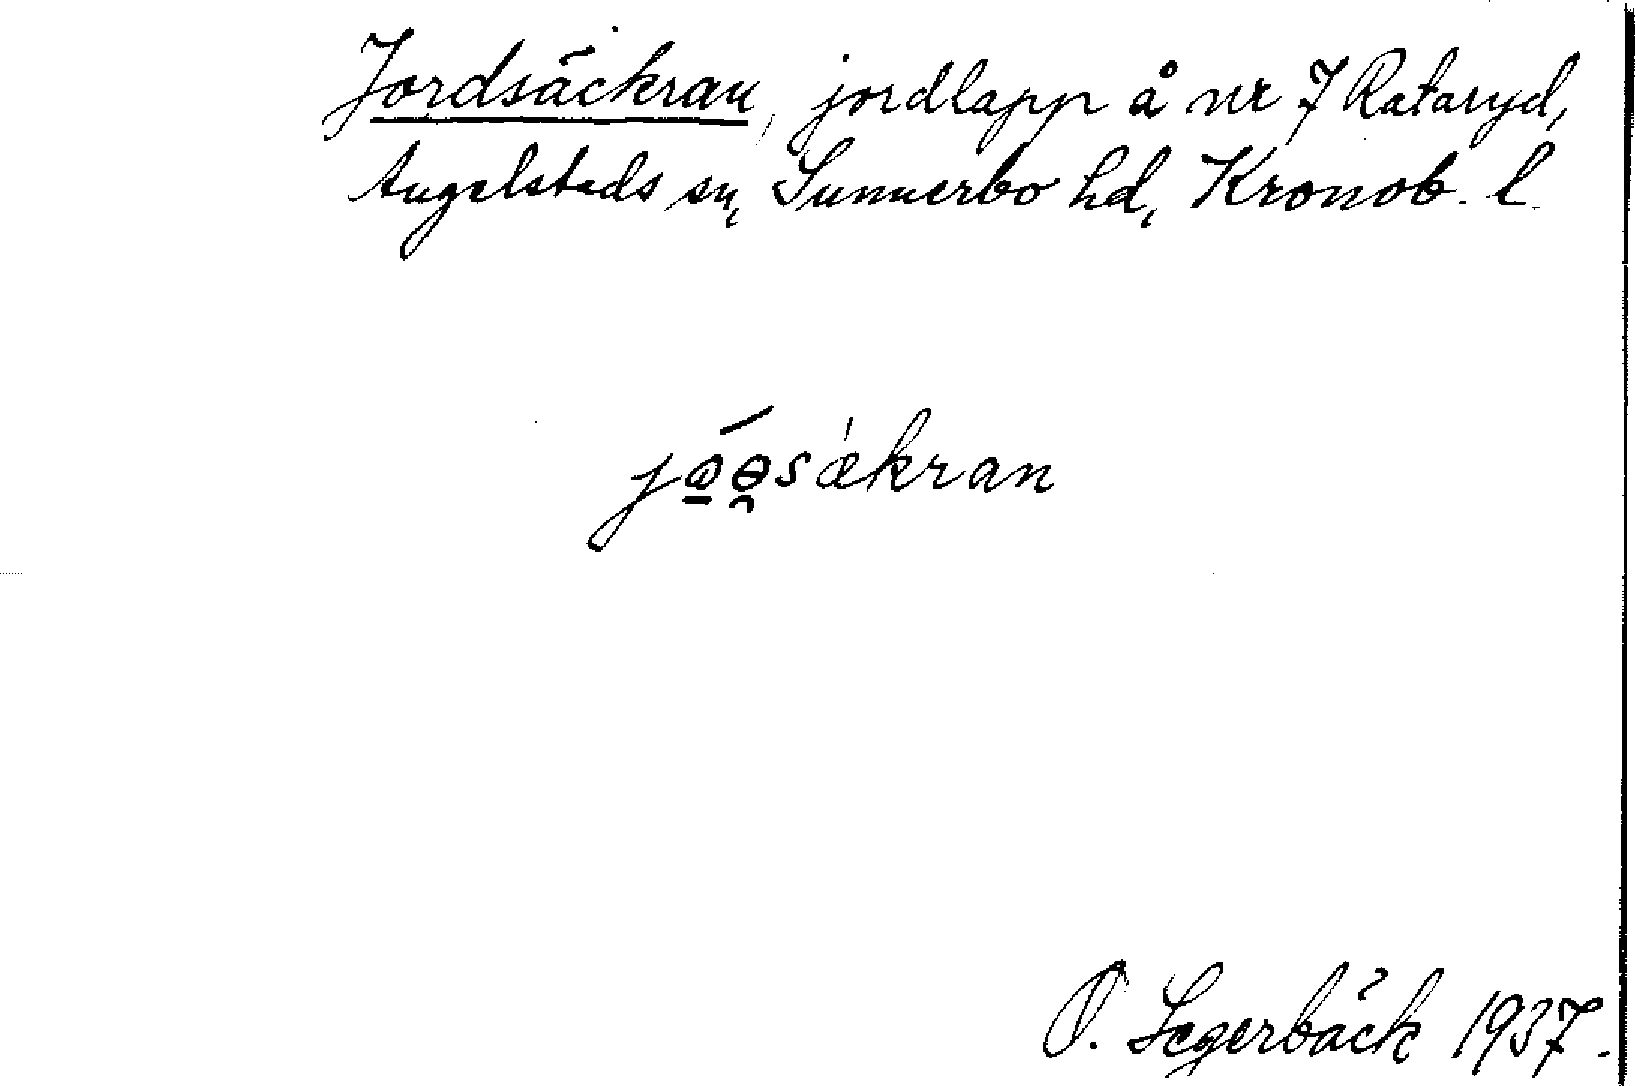 Jordsäckran, jordlapp å nr 7 Rataryd,
Angelstads sn, Sunnerbo hd, Kronob. l.
O. Segerbäck 1937.